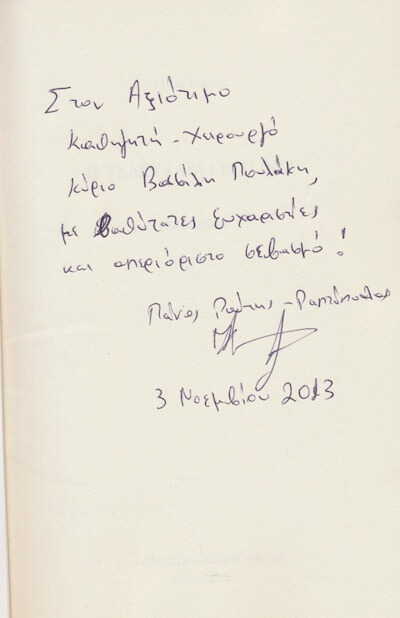 Στον Αξιότιμο
Καθηγητή - Χειρουργό
κύριο Βασίλη Πουλάκη,
με βαθύτατες ευχαριστίες
και απεριόριστο σεβασμό!
Πάνος - Ραπτόπουλος
3 Νοεμβρίου 2013